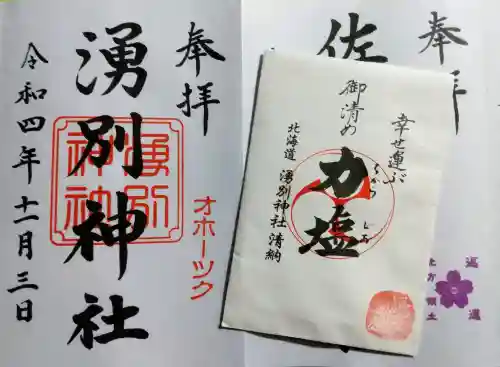 奉拝
湧別神社
湧別
神社
オホーツク
令和四年十一月三日
幸せ運ぶ
御清め
力塩
ちから
しお
北海道 湧別神社 清納
奉拝
佐
北方領土